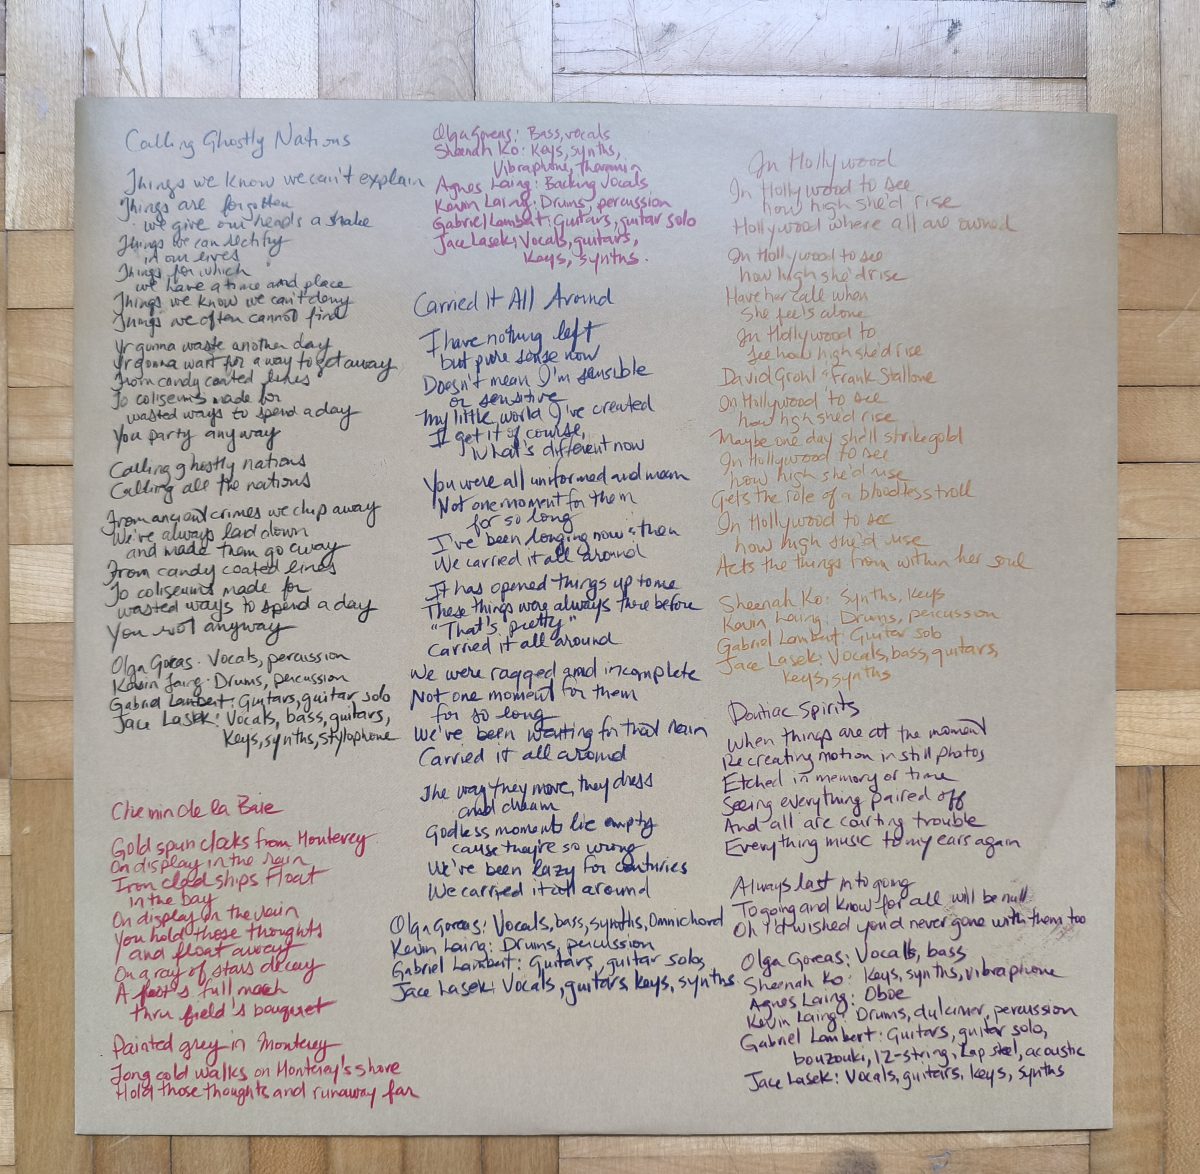 Calling Ghostly Nations
Things we know we can't explain
Things are forgotten
we give our heads a shake
Things we can rectify
in our lives
Things for which
we have a time and place
Things we know we can't deny
Things we often cannot find
Yr gonna waste another day
Yr gonna want for a way to get away
From candy coated lines
To coliseums made for
wasted ways to spend a day
You party anyway
Calling ghostly nations
Calling all the nations
From ancient crimes we chip away
We've always laid down
and made them go away
From candy coated lines
To coliseums made for
wasted ways to spend a day
You riot anyway
Olga Goreas: Vocals, percussion
Kevin Laing: Drums, percussion
Gabriel Lambert: Guitars, guitar solo
Jace Lasek: Vocals, bass, guitars,
Keys, synths, stylophone
Chemin de la Baie
Gold spun clocks from Monterey
On display in the rain
Iron clad ships float
in the bay
On display in the
You hold those thoughts
and float away
On a ray of stars decay
A full
thru field's bouquet
Painted grey in Monterey
Long cold walks on Monterey's shore
Hold those thoughts and runaway far
Olga Goreas: Bass, vocals
Sheenah Ko: Keys, synths,
Vibraphone, theremin
Agnes Laing: Backing vocals
Kevin Laing: Drums, percussion
Gabriel Lambert: Guitars, guitar solo
Jace Lasek: Vocals, guitars,
Keys, synths.
Carried It All Around
I have nothing left
but pure sense now
Doesn't mean I'm sensible
or sensitive
My little world I've created
I get it of course,
What's different now
You were all uniformed and mean
Not one moment for them
for so long
I've been longing now & then
We carried it all around
It has opened things up to me
These things were always there before
"That's pretty"
Carried it all around
We were ragged and incomplete
Not one moment for them
for so long
We've been waiting for that rain
Carried it all around
The way they move, they dress
and charm
Godless moments lie empty
cause they're so wrong
We've been lazy for centuries
We carried it all around
Olga Goreas: Vocals, bass, synths, Omnichord
Kevin Laing: Drums, percussion
Gabriel Lambert: Guitars, guitar solos
Jace Lasek: Vocals, guitars, keys, synths
In Hollywood
In Hollywood to see
how high she'd rise
Hollywood where all are owned
In Hollywood to see
how high she'd rise
Have her call when
she feels alone
In Hollywood to
see how high she'd rise
David Grohl & Frank Stallone
In Hollywood to see
how high she'd rise
Maybe one day she'll strike gold
In Hollywood to see
how high she'd rise
Gets the role of a bloodless troll
In Hollywood to see
how high she'd rise
Acts the things from within her soul
Sheenah Ko: Synths, Keys
Kevin Laing: Drums, percussion
Gabriel Lambert: Guitar solo
Jace Lasek: Vocals, bass, guitars,
Keys, synths
Pontiac Spirits
When things are at the moment
Recreating motion in still photos
Etched in memory or time
Seeing everything paired off
And all are courting trouble
Everything music to my ears again
Always last into going
To going and know for all will be null
Oh I'd wished you'd never gone with them too
Olga Goreas: Vocals, bass
Sheenah Ko: Keys, synths, vibraphone
Agnes Laing: Oboe
Kevin Laing: Drums, dulcimer, percussion
Gabriel Lambert: Guitars, guitar solo,
bouzouki, 12-string, lap steel, acoustic
Jace Lasek: Vocals, guitars, keys, synths